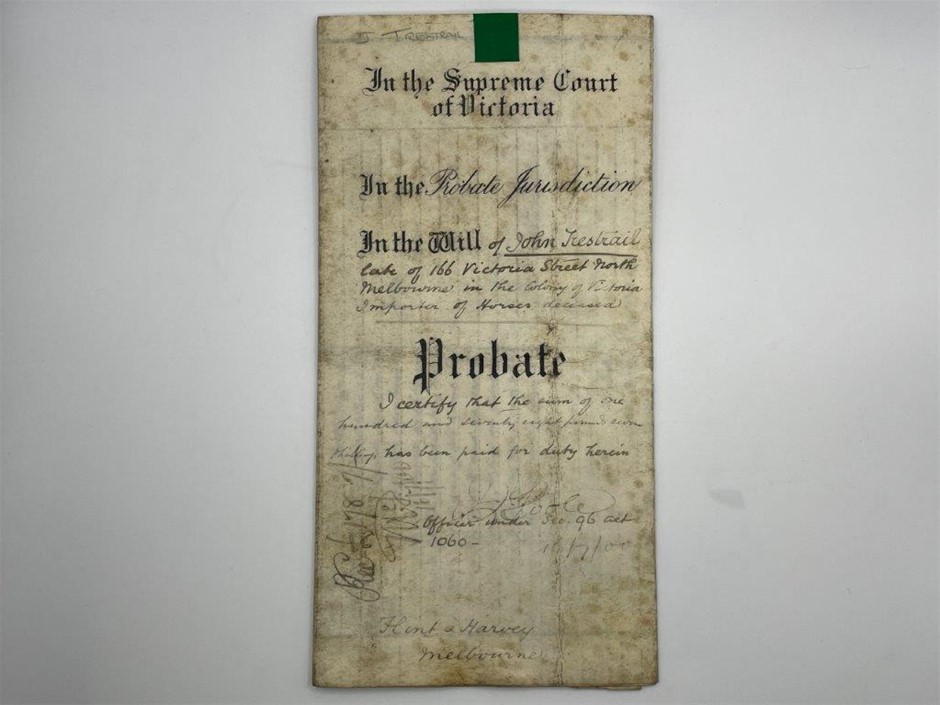 J TRESTRAIL
In the Supreme Court
of Victoria
In the Probate Jurisdiction
In the Will of John Trestrail
late of 166 Victoria Street North
Melbourne in the Colony of Victoria
Importer of Horses deceased
Probate
I certify that the sum of one
hundred and seventy eight pounds seven
shillings has been paid for duty herein
Officer under Sec. 96 act
1060 -
Flint & Harvey
Melbourne